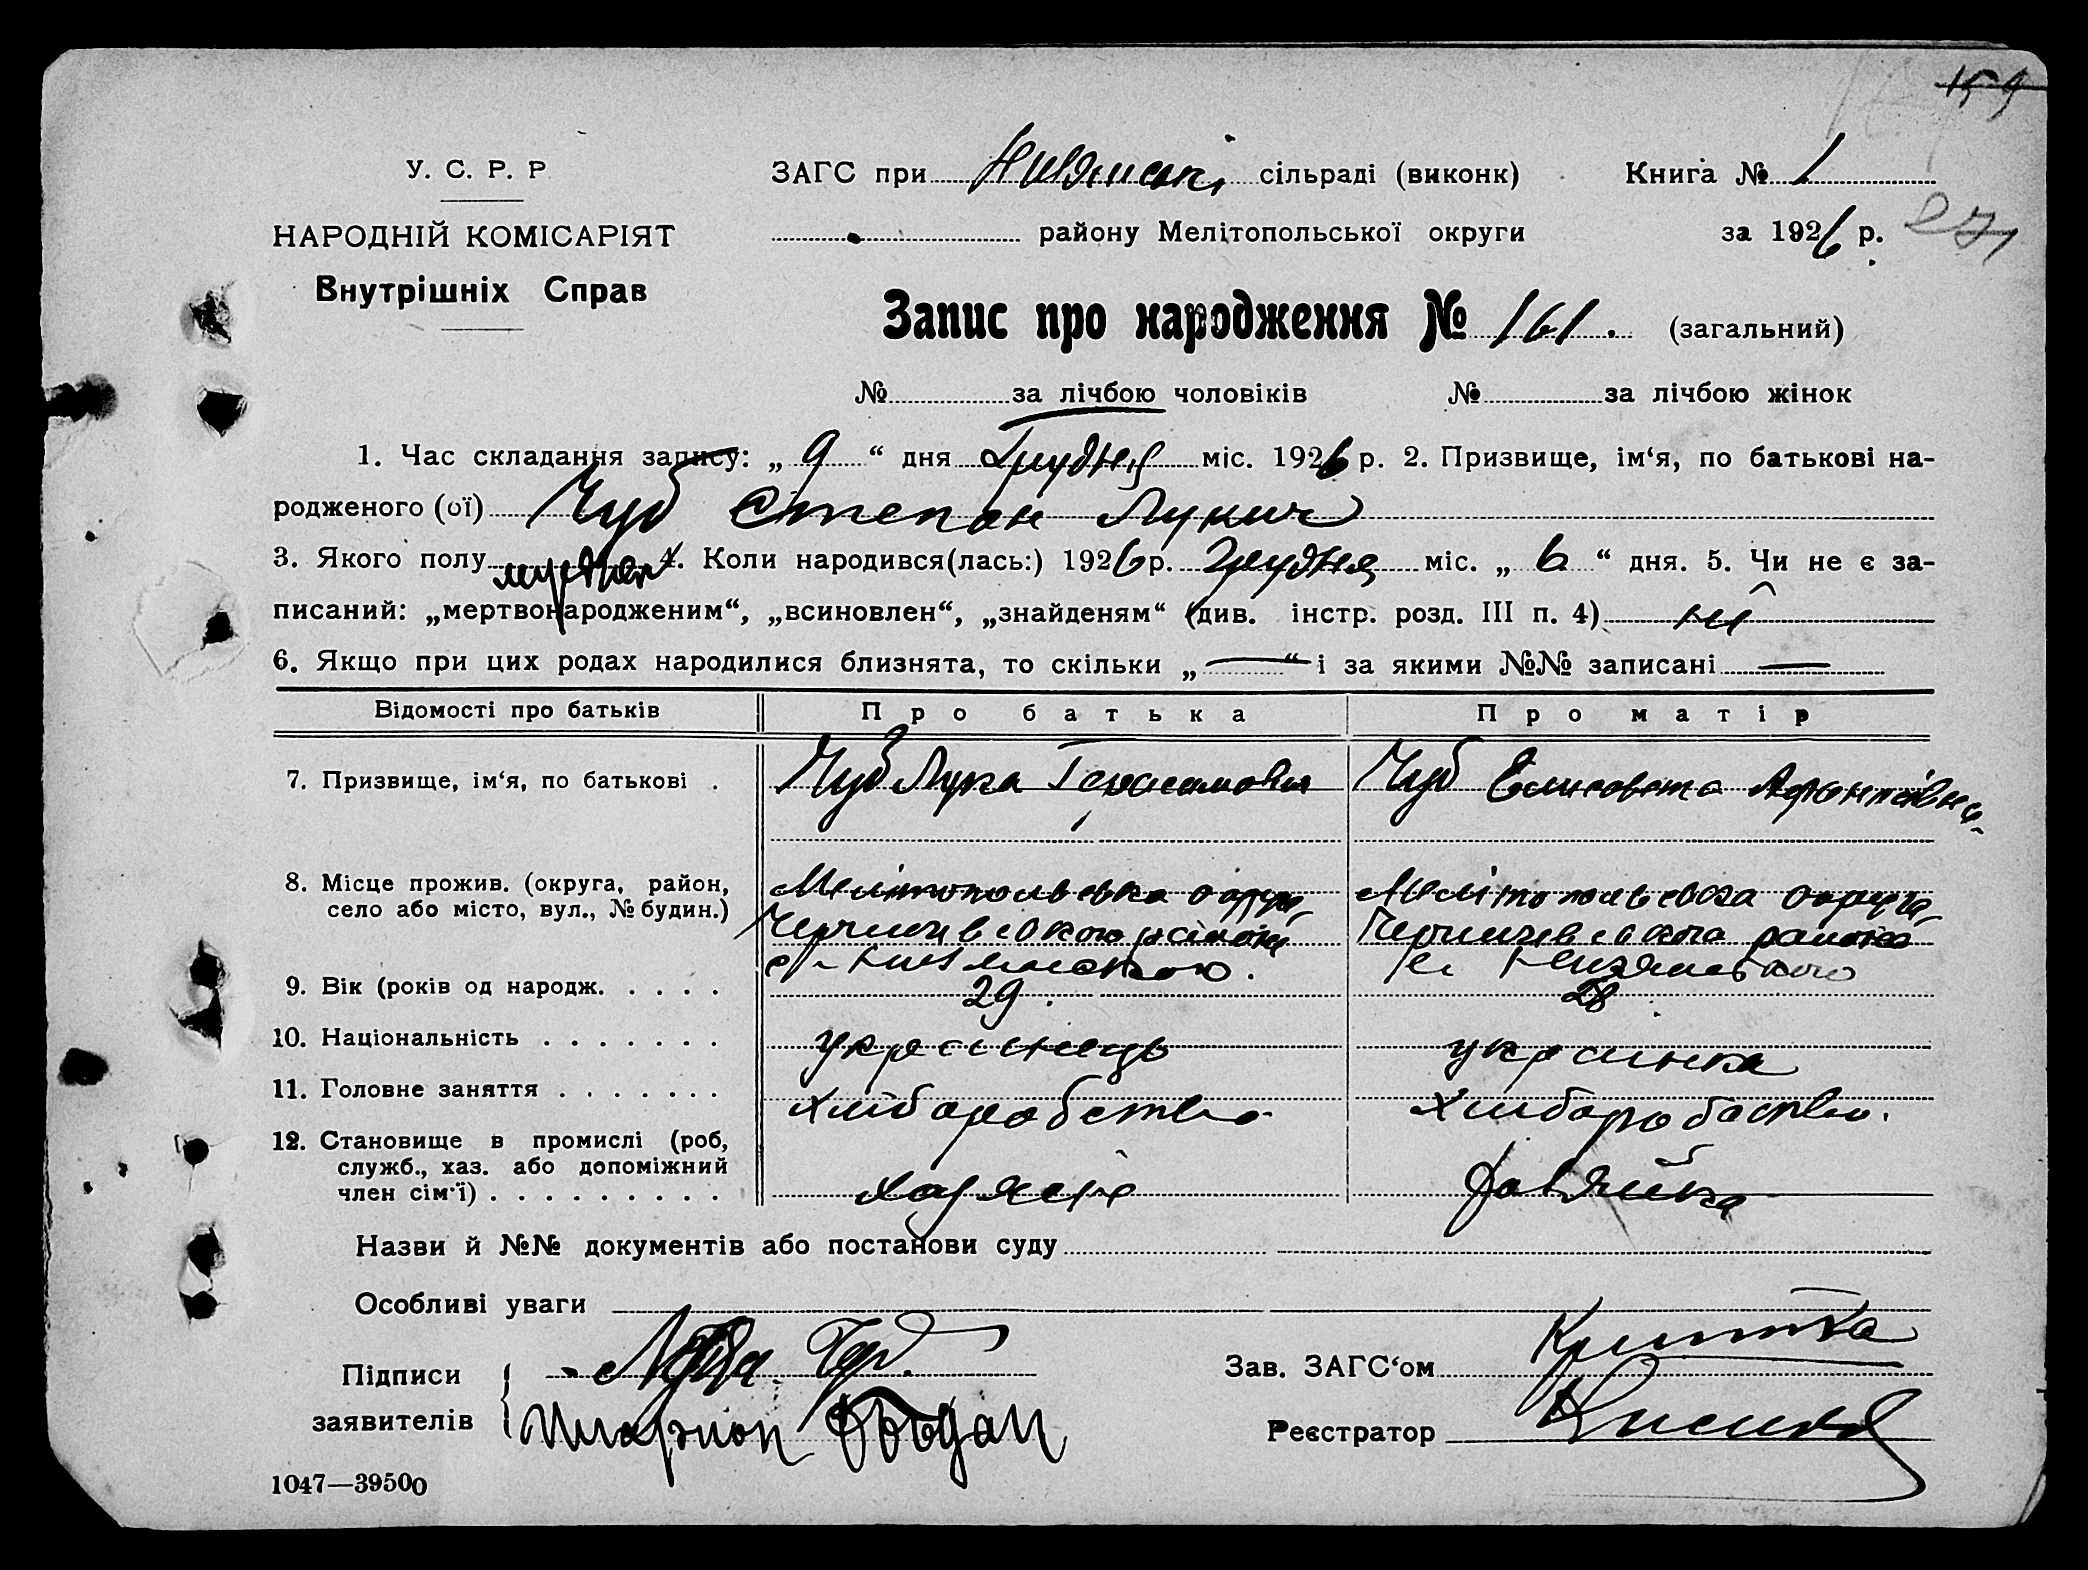 159
У. С. Р. Р
НАРОДНІЙ КОМІСАРІЯТ
Внутрішніх Справ
ЗАГС при сільраді (виконк)
Книга № 1
району Мелітопольської округи
за 1926 р.
271
Запис про народження № 161. (загальний)
№ за лічбою чоловіків № за лічбою жінок
1. Час складання запису: „ 9 “ дня Грудня міс. 1926 р. 2. Призвище, ім‘я, по батькові на-
родженого (ої) Чуб Степан Лукич
3. Якого полу 4. Коли народився(лась:) 1926 р. Грудня міс. „ 6 “ дня. 5. Чи не є за-
писаний: „мертвонародженим“, „всиновлен“, „знайденям“ (див. інстр. розд. III п. 4) ні
6. Якщо при цих родах народилися близнята, то скільки „ — “ і за якими №№ записані —
Відомості про батьків Про батька Про матір
7. Призвище, ім‘я, по батькові . Чуб Лука Герасимович Чуб Елисовета
8. Місце прожив. (округа, район, село або місто, вул., № будин.)
Мелітопольська округа Мелітопольська округа
9. Вік (років од народж. . . . . 29. 28.
10. Національність . . . . . . . українець українка
11. Головне заняття . . . . . . . хліборобство хліборобство.
12. Становище в промислі (роб,
служб., хаз. або допоміжний
член сім‘ї) . . . . . . . . . хазяїн хазяйка
Назви й №№ документів або постанови суду
Особливі уваги
Підписи
заявителів
Лука Чуб.
Зав. ЗАГС‘ом
Реєстратор
1047—39500